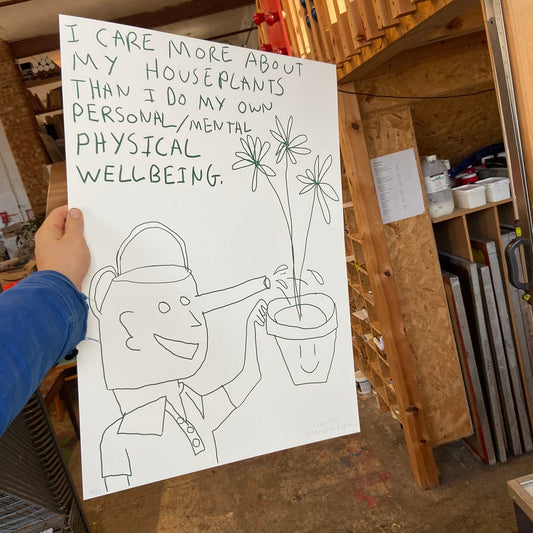 I CARE MORE ABOUT
MY HOUSEPLANTS
THAN I DO MY OWN
PERSONAL/MENTAL
PHYSICAL
WELLBEING.